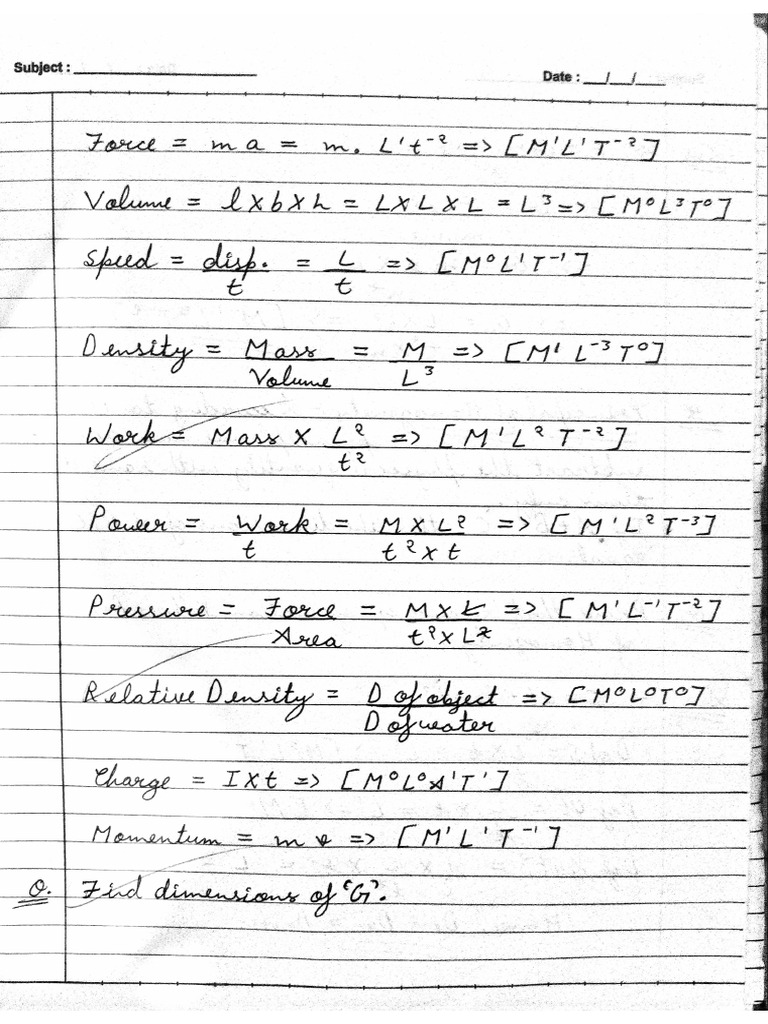 Subject : ____________________ Date : __/__/__
Force = m a = m. L¹t⁻² => [M¹L¹T⁻²]
Volume = l x b x h = L x L x L = L³ => [M⁰L³T⁰]
Speed = disp./t = L/t => [M⁰L¹T⁻¹]
Density = Mass/Volume = M/L³ => [M¹ L⁻³ T⁰]
Work = Mass x L²/t² => [M¹L² T⁻²]
Power = Work/t = M x L²/t² x t => [M¹L² T⁻³]
Pressure = Force/Area = M x L/t² x L² => [M¹L⁻¹T⁻²]
Relative Density = D of object/D of water => [M⁰L⁰T⁰]
Charge = I x t => [M⁰L⁰A¹T¹]
Momentum = m v => [M¹L¹T⁻¹]
Q. Find dimensions of 'G'.